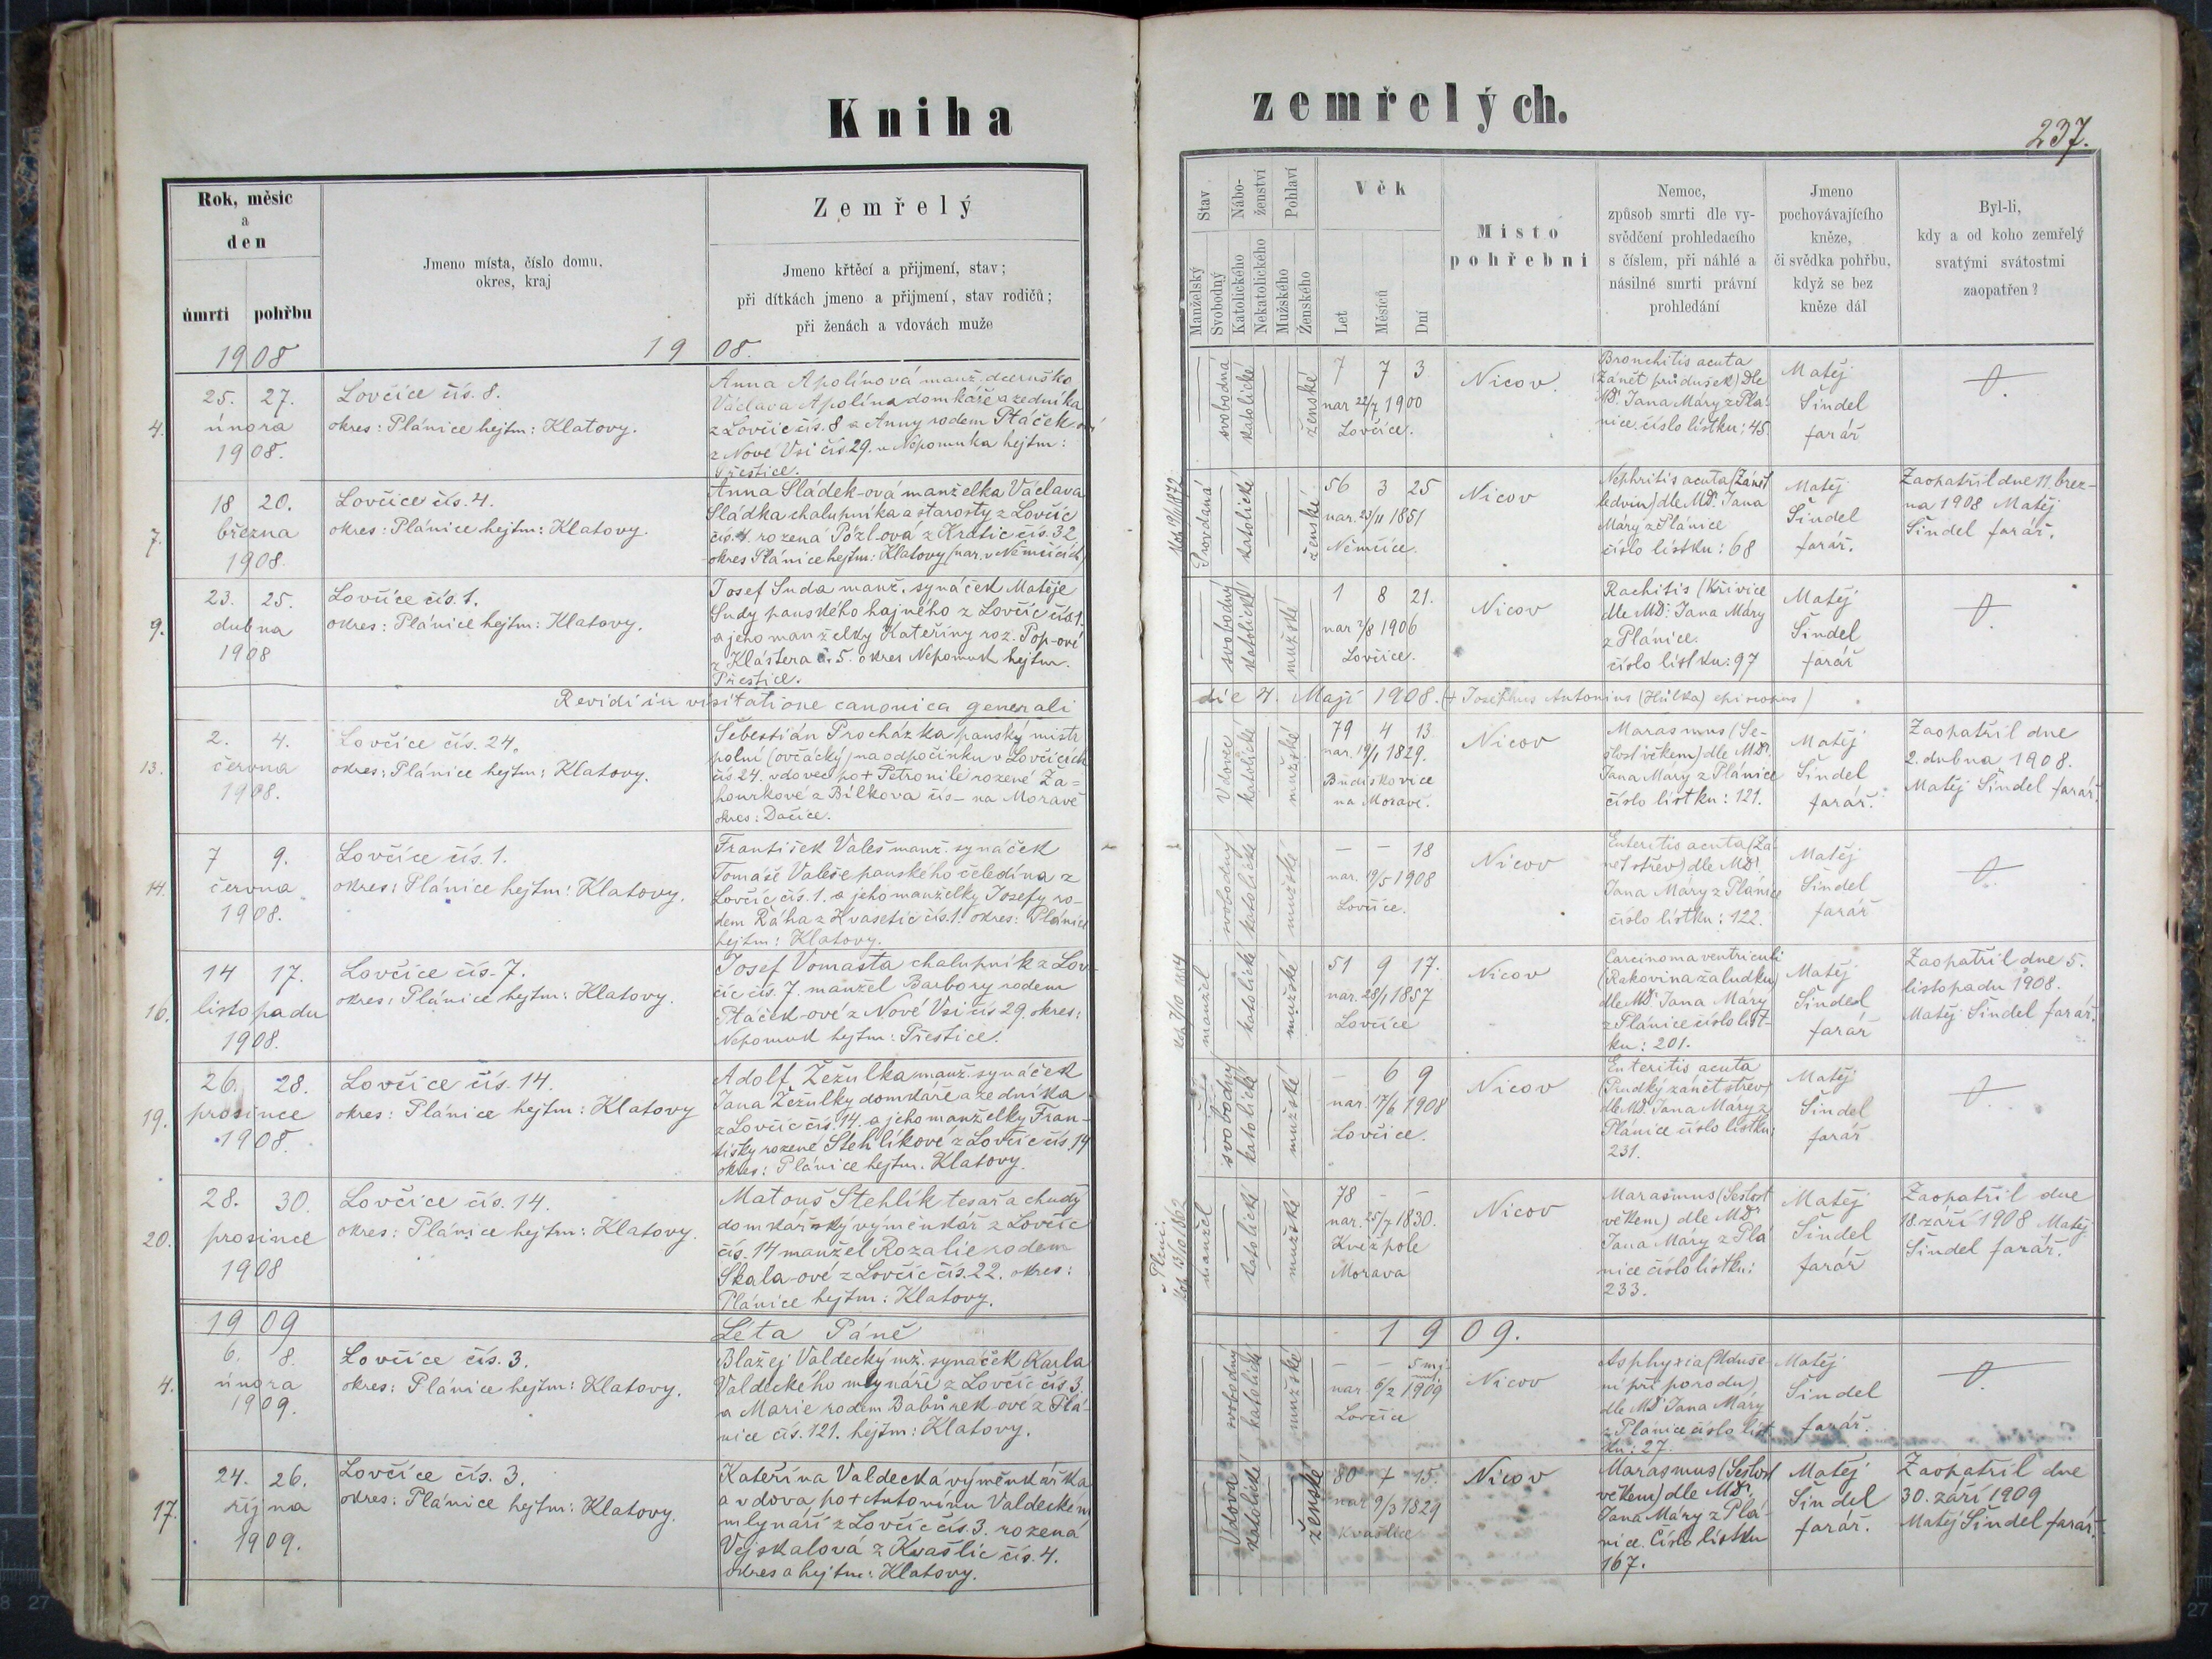 Kniha
Rok, měsíc
a
den
úmrtí pohřbu
Jmeno místa, číslo domu,
okres, kraj
Zemřelý
Jmeno křtěcí a přijmení, stav;
při dítkách jmeno a přijmení, stav rodičů;
při ženách a vdovách muže
1908
1908.
4.
25. 27.
února
1908.
Lovčice čís. 8.
okres: Plánice hejtm: Klatovy.
Anna Apolínová manž. dceruško
Václava Apolína domkáře a zedníka
z Lovčic čís. 8 a Anny rodem Ptáček-ové
z Nové Vsi čís. 29. u Nepomuka hejtm:
Přestice.
7.
18 20.
března
1908.
Lovčice čís. 4.
okres: Plánice hejtm: Klatovy.
Anna Sládek-ová manželka Václava
Sládka chalupníka a starosty z Lovčic
čís. 4. rozená Pözl-ová z Kratic čís. 32
okres Plánice hejtm: Klatovy (nar. v Němčicích)
9.
23. 25.
dubna
1908
Lovčice čís. 1.
okres: Plánice hejtm: Klatovy.
Josef Suda manž. synáček Matěje
Sudy panského hajného z Lovčic čís 1.
a jeho manželky Kateřiny roz. Pop-ové
z Kláštera č. 5. okres Nepomuk hejtm.
Přestice.
Revidi in visitatione canonica generali
13.
2. 4.
června
1908.
Lovčice čís. 24.
okres: Plánice hejtm: Klatovy.
Šebestián Procházka panský mistr
polní (ovčácký) na odpočinku v Lovčicích
čís 24. vdovec po + Petronile rozené Ža=
hourkové z Bílkova čís – na Moravě
okres: Dačice.
14.
7 9.
června
1908.
Lovčice čís. 1.
okres: Plánice hejtm: Klatovy.
František Valeš manž. synáček
Tomáše Valeše panského čeledína z
Lovčic čís. 1. a jeho manželky Josefy ro-
dem Ráha z Kvasetic čís. 1. okres: Plánice
hejtm: Klatovy.
16.
14 17.
listopadu
1908.
Lovčice čís. 7.
okres: Plánice hejtm: Klatovy.
Josef Vomasta chalupník z Lov-
čic čís. 7. manžel Barbory rodem
Ptáček-ové z Nové Vsi čís 29. okres:
Nepomuk hejtm: Přestice.
19.
26. 28.
prosince
1908.
Lovčice čís. 14.
okres: Plánice hejtm: Klatovy
Adolf Žežulka manž. synáček
Jana Žežulky domkáře a zedníka
z Lovčic čís. 14. a jeho manželky Fran-
tišky rozené Stehlíkové z Lovčic čís. 14
okres: Plánice hejtm. Klatovy.
20.
28. 30.
prosince
1908
Lovčice čís. 14.
okres: Plánice hejtm: Klatovy.
Matouš Stehlík tesař a chudý
domkářský výměnkář z Lovčic
čís. 14 manžel Rozalie rodem
Skala-ové z Lovčic čís. 22. okres:
Plánice hejtm: Klatovy.
1909
Léta Páně
4.
6. 8.
února
1909.
Lovčice čís. 3.
okres: Plánice hejtm: Klatovy.
Blažej Valdecký mž. synáček Karla
Valdeckého mlynáře z Lovčic čís 3.
a Marie rodem Babůrek-ové z Plá-
nice čís. 121. hejtm: Klatovy.
17.
24. 26.
října
1909.
Lovčice čís. 3.
okres: Plánice hejtm: Klatovy.
Kateřina Valdecká výměnkářka
a vdova po + Antonínu Valdeckém
mlynáři z Lovčic čís. 3. rozená
Vejskalová z Kvašlic čís. 4.
okres a hejtm: Klatovy.
zemřelých.
237.
Stav
Manželský
Svobodný
Nábo-
ženství
Katolického
Nekatolického
Pohlaví
Mužského
Ženského
Věk
Let
Měsíců
Dní
Místo
pohřební
Nemoc,
způsob smrti dle vy-
svědčení prohledacího
s číslem, při náhlé a
násilné smrti právní
prohledání
Jmeno
pochovávajícího
kněze,
či svědka pohřbu,
když se bez
kněze dál
Byl-li,
kdy a od koho zemřelý
svatými svátostmi
zaopatřen?
svobodná
katolické
ženské
7 7 3
nar 22/7 1900
Lovčice.
Nicov.
Bronchitis acuta
(Zánět průdušek) dle
MDr Jana Máry z Plá-
nice číslo lístku: 45.
Matěj
Šindel
farář
Kop. 19/11 1872
Provdaná
katolické
ženské
56 3 25
nar. 23/11 1851
Němčice.
Nicov
Nephritis acuta (Zánět
ledvin) dle MDr. Jana
Máry z Plánice
číslo lístku: 68
Matěj
Šindel
farář.
Zaopatřil dne 11. brez-
na 1908 Matěj
Šindel farář.
svobodný
katolické
mužské
1 8 21.
nar 2/8 1906
Lovčice.
Nicov
Rachitis (Křivice
dle MDr. Jana Máry
z Plánice.
číslo lístku: 97
Matěj
Šindel
farář
die 4. Maji 1908. (+ Josephus Antonius (Hůlka) episcopus)
Vdovec
katolické
mužské
79 4 13
nar. 19/1 1829.
Budiskovice
na Moravě.
Nicov
Marasmus (Se-
šlost věkem) dle MDr.
Jana Máry z Plánice
číslo lístku: 121.
Matěj
Šindel
farář.
Zaopatřil dne
2. dubna 1908.
Matěj Šindel farář.
svobodný
katolické
mužské
– – 18
nar. 19/5 1908
Lovčice.
Nicov
Enteritis acuta (Zá-
nět střev) dle MDr
Jana Máry z Plánice
číslo lístku: 122.
Matěj
Šindel
farář
kop. 7/10 1884
manžel
katolické
mužské
51 9 17.
nar. 28/1 1857
Lovčice
Nicov
Carcinoma ventriculi
(Rakovina žaludku)
dle MDr Jana Máry
z Plánice číslo líst-
ku: 201.
Matěj
Šindel
farář
Zaopatřil dne 5.
listopadu 1908.
Matěj Šindel farář.
svobodný
katolické
mužské
– 6 9
nar. 17/6 1908
Lovčice.
Nicov
Enteritis acuta
(Prudký zánět střev)
dle MDr. Jana Máry z
Plánice číslo lístku:
231.
Matěj
Šindel
farář
Kop. 13/10 1862
manžel
katolické
mužské
78 – –
nar. 25/7 1830.
Kněžpole
Morava
Nicov
Marasmus (Sešlost
věkem) dle MDr
Jana Máry z Plá
nice číslo lístku:
233.
Matěj
Šindel
farář
Zaopatřil dne
18. září 1908 Matěj
Šindel farář.
1909.
svobodný
katolické
mužské
– – 5 mi-
nar. 6/2 1909
Lovčice
Nicov
Asphyxia (Uduše-
ní při porodu)
dle MDr Jana Máry
z Plánice číslo líst
ku: 27.
Matěj
Šindel
farář.
Vdova
katolické
ženské
80 7 15.
nar 9/3 1829
Kvašlice
Nicov
Marasmus (Sešlost
věkem) dle MDr.
Jana Máry z Plá-
nice. Číslo lístku
167.
Matěj
Šindel
farář.
Zaopatřil dne
30. září 1909
Matěj Šindel farář.